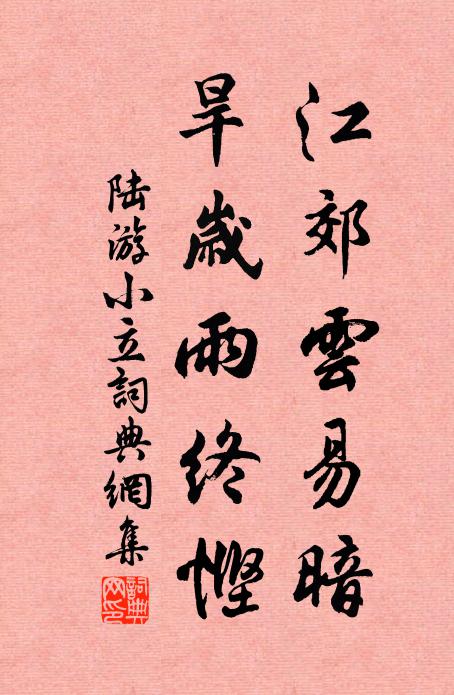 江郊雲易暗
旱歲雨終慳
陸游小立詞典網集
詞典網印